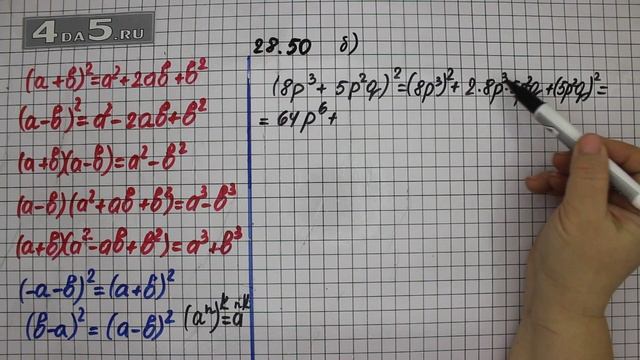 4DA5.RU
(a+b)²=a²+2ab+b²
(a-b)²=a²-2ab+b²
(a+b)(a-b)=a²-b²
(a-b)(a²+ab+b²)=a³-b³
(a+b)(a²-ab+b²)=a³+b³
(-a-b)²=(a+b)²
(b-a)²=(a-b)²
(aⁿ)ᵏ=aⁿ·ᵏ
28.50 б)
(8p³+5p²q)²=(8p³)²+2·8p³·5p²q+(5p²q)²=
=64p⁶+